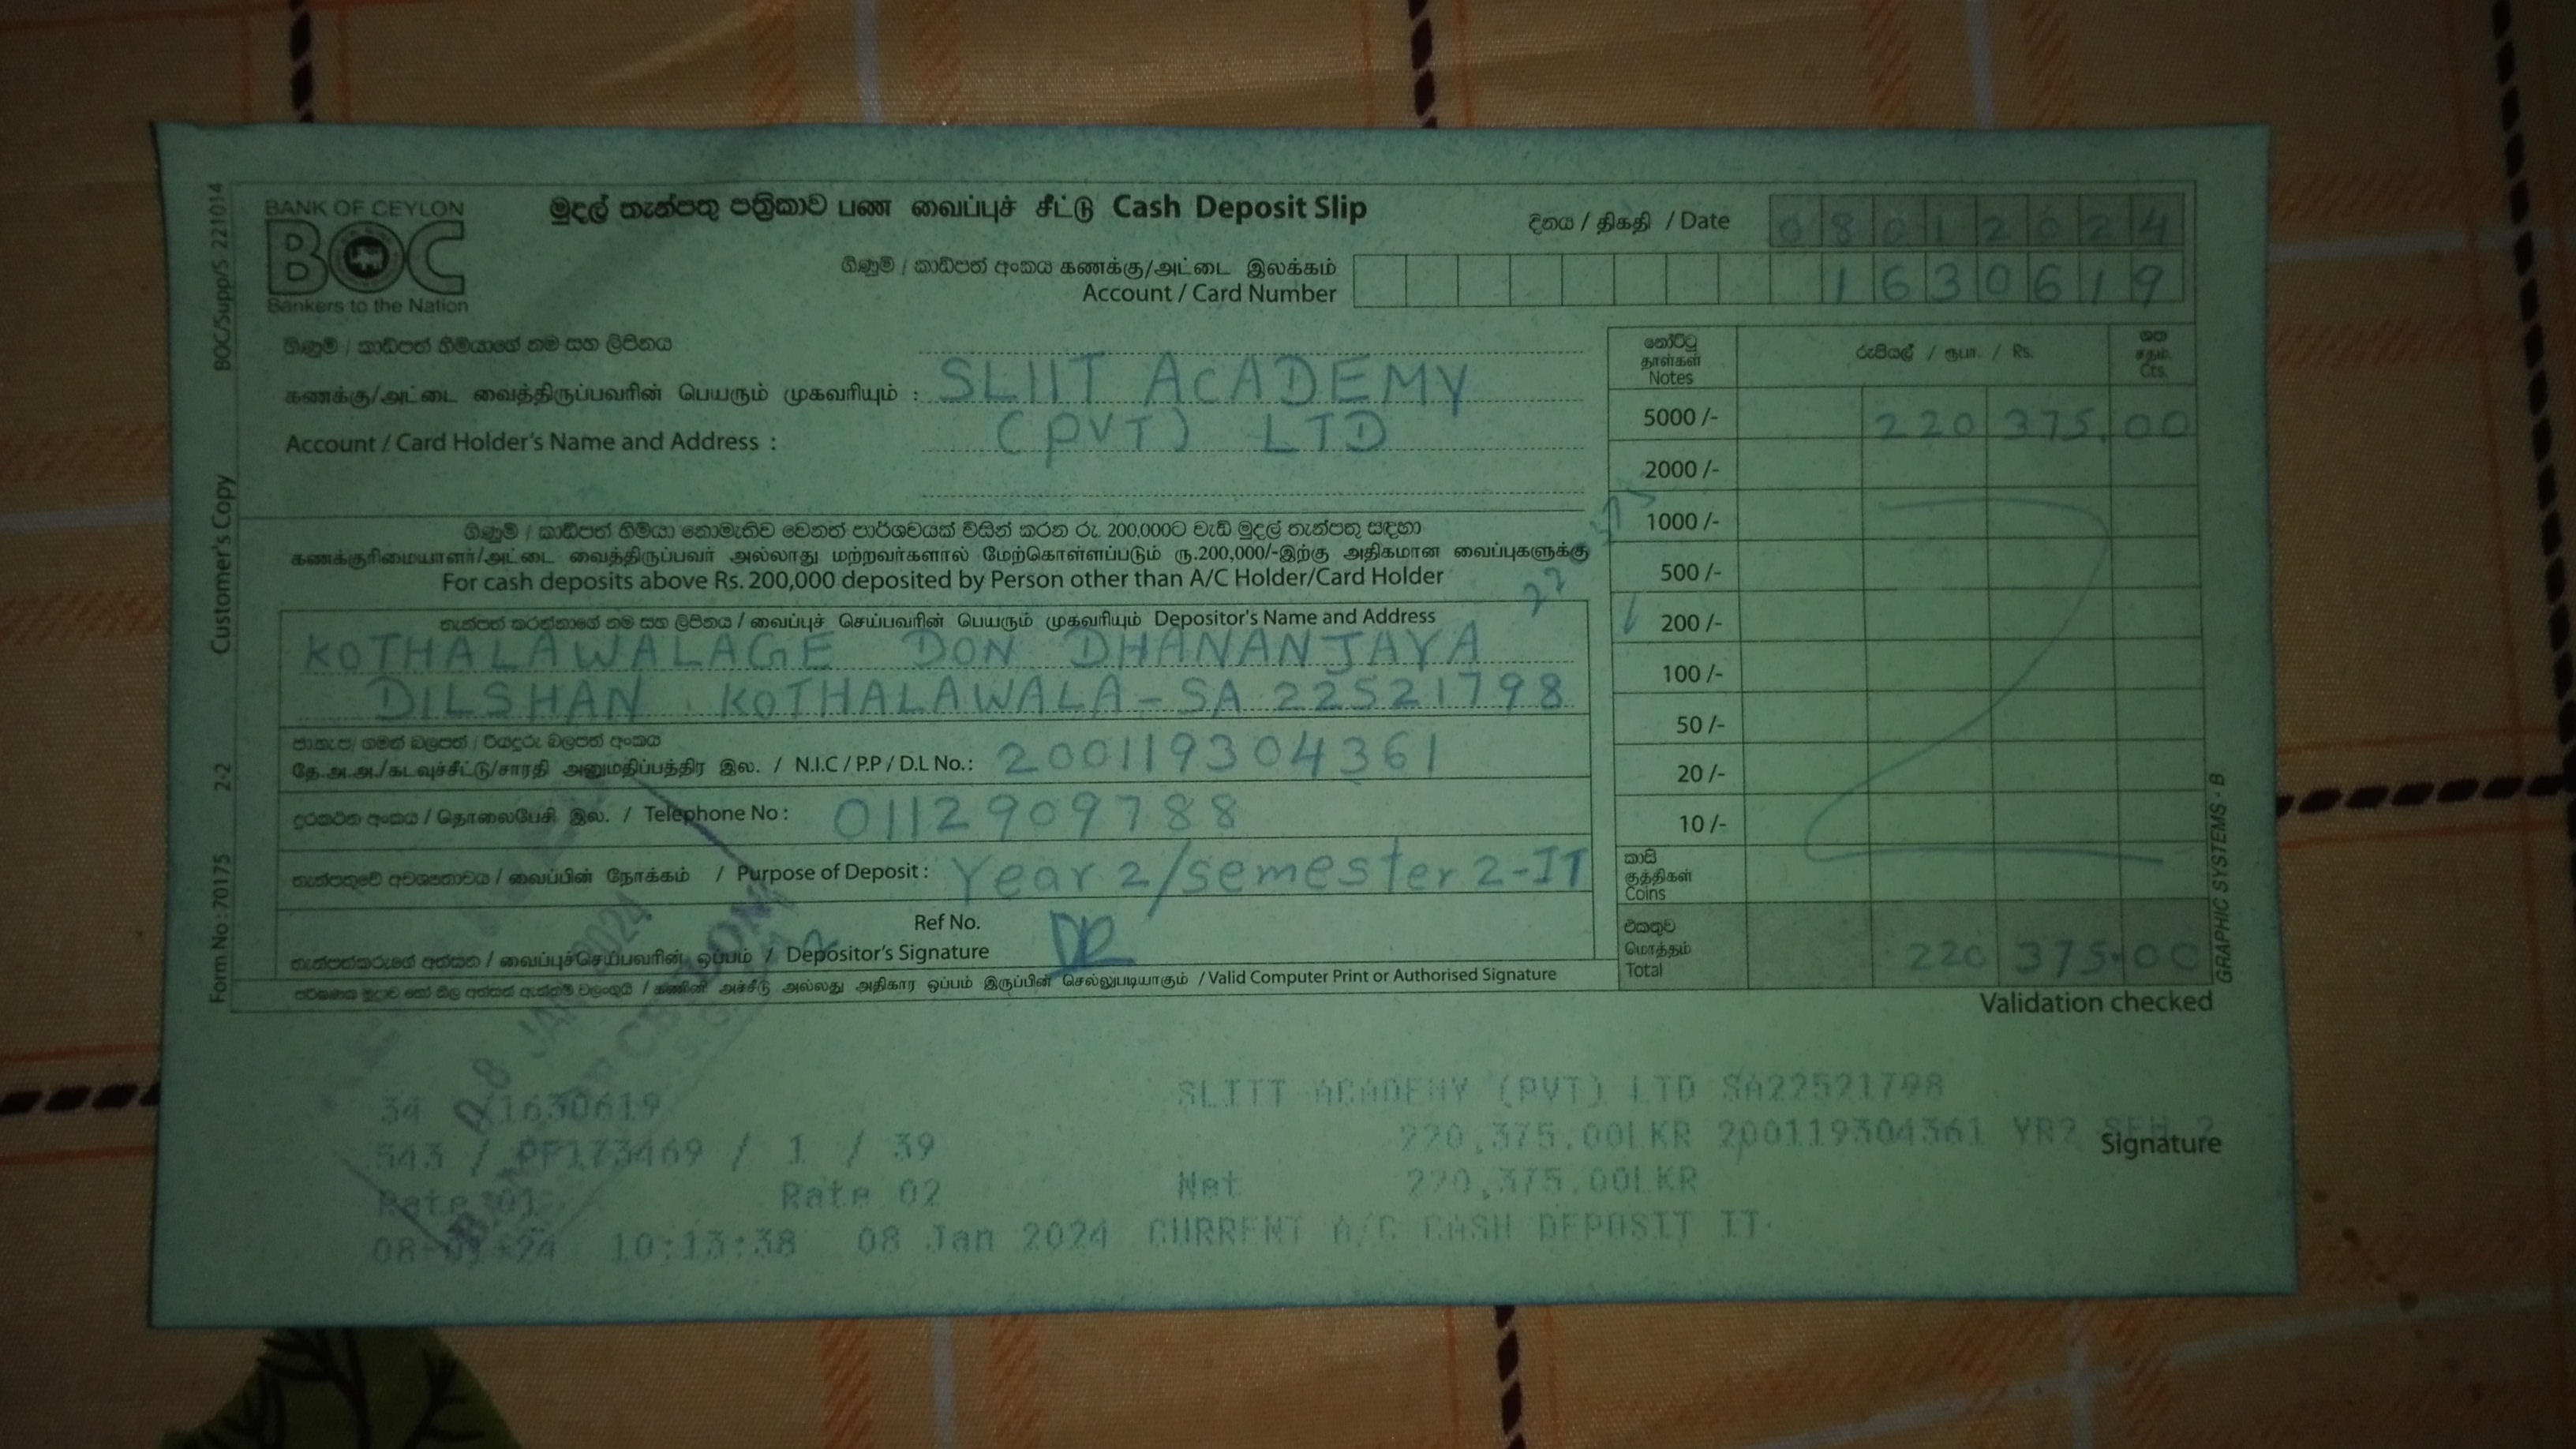 BANK OF CEYLON
BOC
Bankers to the Nation
මුදල් තැන්පතු පත්‍රිකාව பண வைப்புச் சீட்டு Cash Deposit Slip
දිනය / திகதி / Date 08012024
ගිණුම් / කාඩ්පත් අංකය கணக்கு/அட்டை இலக்கம்
Account / Card Number 1630619
ගිණුම් / කාඩ්පත් හිමියාගේ නම සහ ලිපිනය
கணக்கு/அட்டை வைத்திருப்பவரின் பெயரும் முகவரியும் : SLIIT ACADEMY
Account / Card Holder's Name and Address : (PVT) LTD
ගිණුම් / කාඩ්පත් හිමියා නොමැතිව වෙනත් පාර්ශවයක් විසින් කරන රු. 200,000ට වැඩි මුදල් තැන්පතු සඳහා
கணக்குரிமையாளர்/அட்டை வைத்திருப்பவர் அல்லாது மற்றவர்களால் மேற்கொள்ளப்படும் ரூ.200,000/-இற்கு அதிகமான வைப்புகளுக்கு
For cash deposits above Rs. 200,000 deposited by Person other than A/C Holder/Card Holder
තැන්පත් කරන්නාගේ නම සහ ලිපිනය / வைப்புச் செய்பவரின் பெயரும் முகவரியும் Depositor's Name and Address
KOTHALAWALAGE DON DHANANJAYA
DILSHAN KOTHALAWALA-SA 22521798
ජා.හැ.ප/ ගමන් බලපත් / රියදුරු බලපත් අංකය
தே.அ.அ./கடவுச்சீட்டு/சாரதி அனுமதிப்பத்திர இல. / N.I.C / P.P / D.L No.: 200119304361
දුරකථන අංකය / தொலைபேசி இல. / Telephone No : 0112909788
තැන්පතුවේ අවශ්‍යතාවය / வைப்பின் நோக்கம் / Purpose of Deposit : Year 2/semester 2-IT
Ref No.
තැන්පත්කරුගේ අත්සන / வைப்புச்செய்பவரின் ஒப்பம் / Depositor's Signature
கணினி அச்சீடு அல்லது அதிகார ஒப்பம் இருப்பின் செல்லுபடியாகும் / Valid Computer Print or Authorised Signature
නෝට්ටු
தாள்கள்
Notes
රුපියල් / ரூபா. / Rs.
ශත
சதம்.
Cts.
5000 /- 220 375.00
2000 /-
1000 /-
500 /-
200 /-
100 /-
50 /-
20 /-
10 /-
කාසි
குத்திகள்
Coins
එකතුව
மொத்தம்
Total 220 375.00
Validation checked
Signature
Form No : 70175 2-2 Customer's Copy BOC/Supp/S 221014
GRAPHIC SYSTEMS - B
08 JAN 2024
34 1630619 SLIIT ACADEMY (PVT) LTD SA22521798
543 / PF173469 / 1 / 39 220,375.00LKR 200119304361 YR2 SEM 2
Rate 01 Rate 02 Net 220,375.00LKR
08-01-24 10:13:38 08 Jan 2024 CURRENT A/C CASH DEPOSIT IT